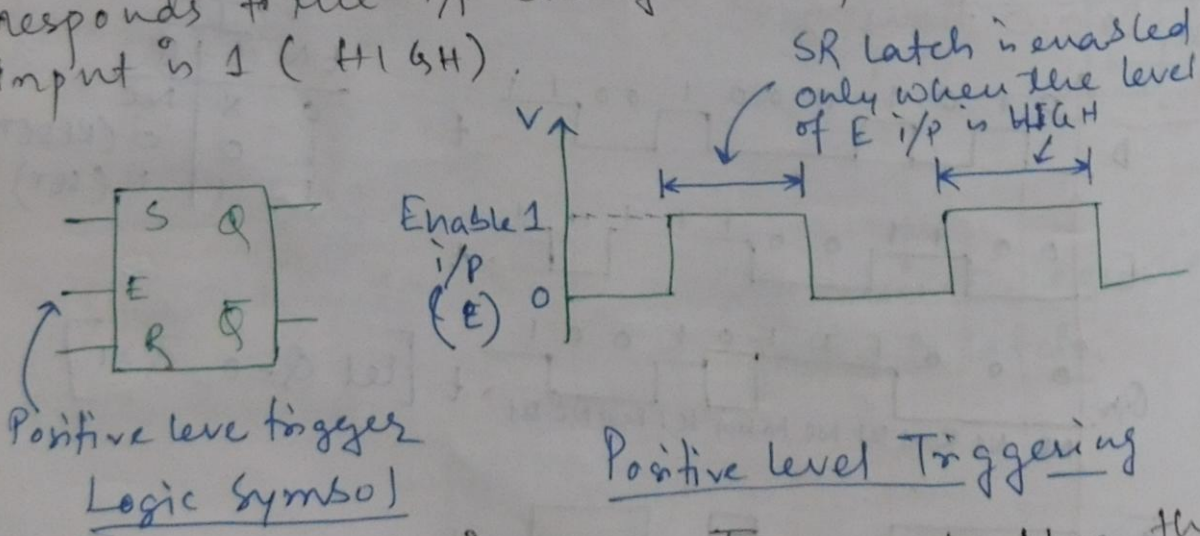 responds
input is 1 ( HIGH ).
SR latch is enabled
only when the level
of E i/p is HIGH
V
Enable 1
i/p
(E)
0
S Q
E
R Q̅
Positive leve trigger
Logic Symbol
Positive level Triggering